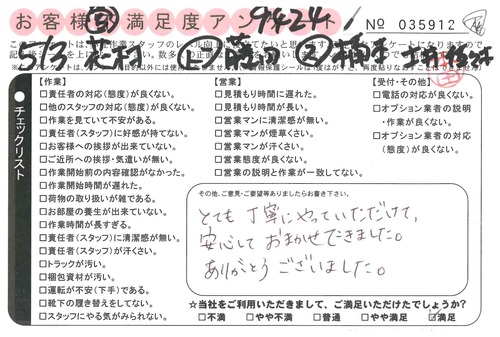 お客様満足度アンケート
9424
No 035912
5/3
【作業】
□責任者の対応(態度)が良くない。
□他のスタッフの対応(態度)が良くない。
□作業を見ていて不安がある。
□責任者(スタッフ)に好感が持てない。
□お客様への挨拶が出来ていない。
□ご近所への挨拶・気遣いが無い。
□作業開始前の内容確認がなかった。
□作業開始時間が遅れた。
□荷物の取り扱いが雑である。
□お部屋の養生が出来ていない。
□作業時間が長すぎる。
□責任者(スタッフ)に清潔感が無い。
□責任者(スタッフ)が汗くさい。
□トラックが汚い。
□梱包資材が汚い。
□運転が不安(下手)である。
□靴下の履き替えをしてない。
□スタッフにやる気がみられない。
【営業】
□見積もり時間に遅れた。
□見積もり時間が長い。
□営業マンに清潔感が無い。
□営業マンが煙草くさい。
□営業マンが汗くさい。
□営業態度が良くない。
□営業の説明と作業が一致してない。
【受付・その他】
□電話の対応が良くない。
□オプション業者の説明
・作業が良くない。
□オプション業者の対応
(態度)が良くない。
●チェックリスト
その他、ご意見・ご要望等ありましたらお書き下さい。
とても丁寧にやっていただけて、
安心しておまかせできました。
ありがとうございました。
☆当社をご利用いただきまして、ご満足いただけたでしょうか?
□不満 □やや不満 □普通 □やや満足 ☑満足